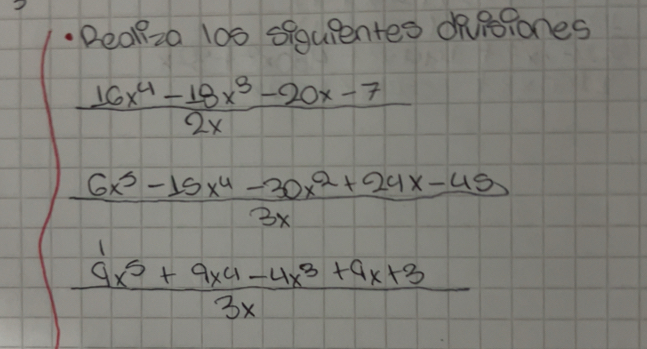 • Realiza los siguientes divisiones
16x⁴ - 18x³ - 20x - 7
2x
6x⁵ - 15x⁴ - 30x² + 24x - 45
3x
9x⁵ + 9x⁴ - 4x³ + 9x + 3
3x